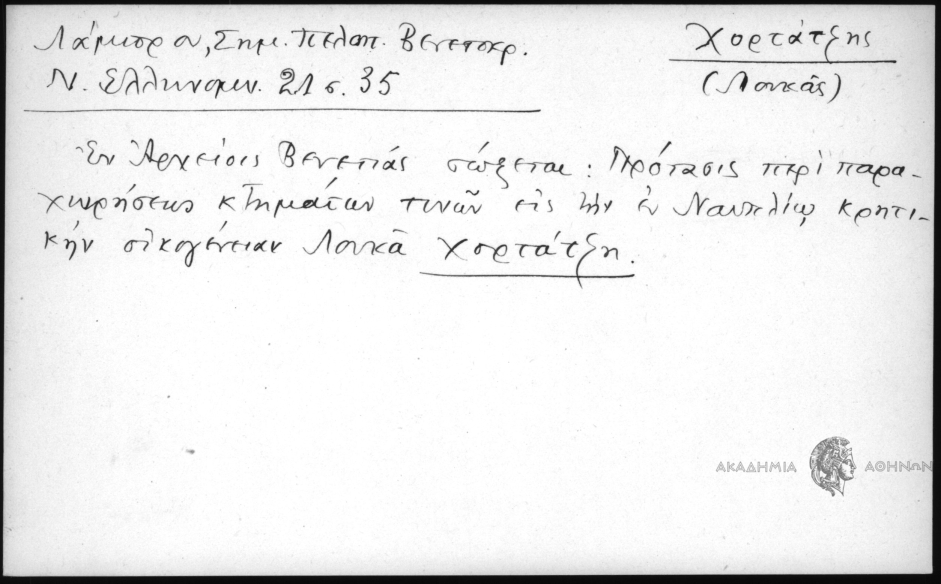 Λάμπρου, Σημ. Πελοπ. Βενετοκρ.
Χορτάτζης
Ν. Ελληνομν. 21 σ. 35
(Λουκᾶς)
Ἐν Ἀρχείοις Βενετίας σώζεται: Πρότασις περὶ παρα-
χωρήσεως κτημάτων τινῶν εἰς τὴν ἐν Ναυπλίῳ κρητι-
κὴν οἰκογένειαν Λουκᾶ Χορτάτζη.
ΑΚΑΔΗΜΙΑ ΑΘΗΝΩΝ